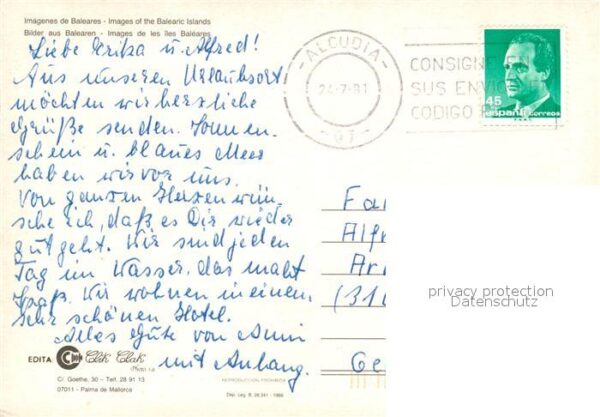 Imagenes de Baleares - Images of the Balearic Islands
Bilder aus Balearen - Images de les îles Baléares
Liebe Erika u. Alfred!
Aus unseren Urlaubsort
möchten wir herzliche
Grüße senden. Sonnen-
schein u. blaues Meer
haben wir vor uns.
Von ganzen Herzen wün-
sche ich, daß es Dir wieder
gut geht. Wir sind jeden
Tag im Wasser, das macht
Spaß. Wir wohnen in einem
sehr schönen Hotel.
Alles Gute von Anni
mit Anhang.
ALCUDIA
24-7-91
07
CONSIGNE
SUS ENVIO
CODIGO
45
españa correos
Fa
Alfr
Ar
(31
Ge
privacy protection
Datenschutz
EDITA Clik Clak
C/. Goethe, 30 - Telf. 28 91 13
07011 - Palma de Mallorca
REPRODUCCION PROHIBIDA
Dep. Leg. B. 36.341 - 1988